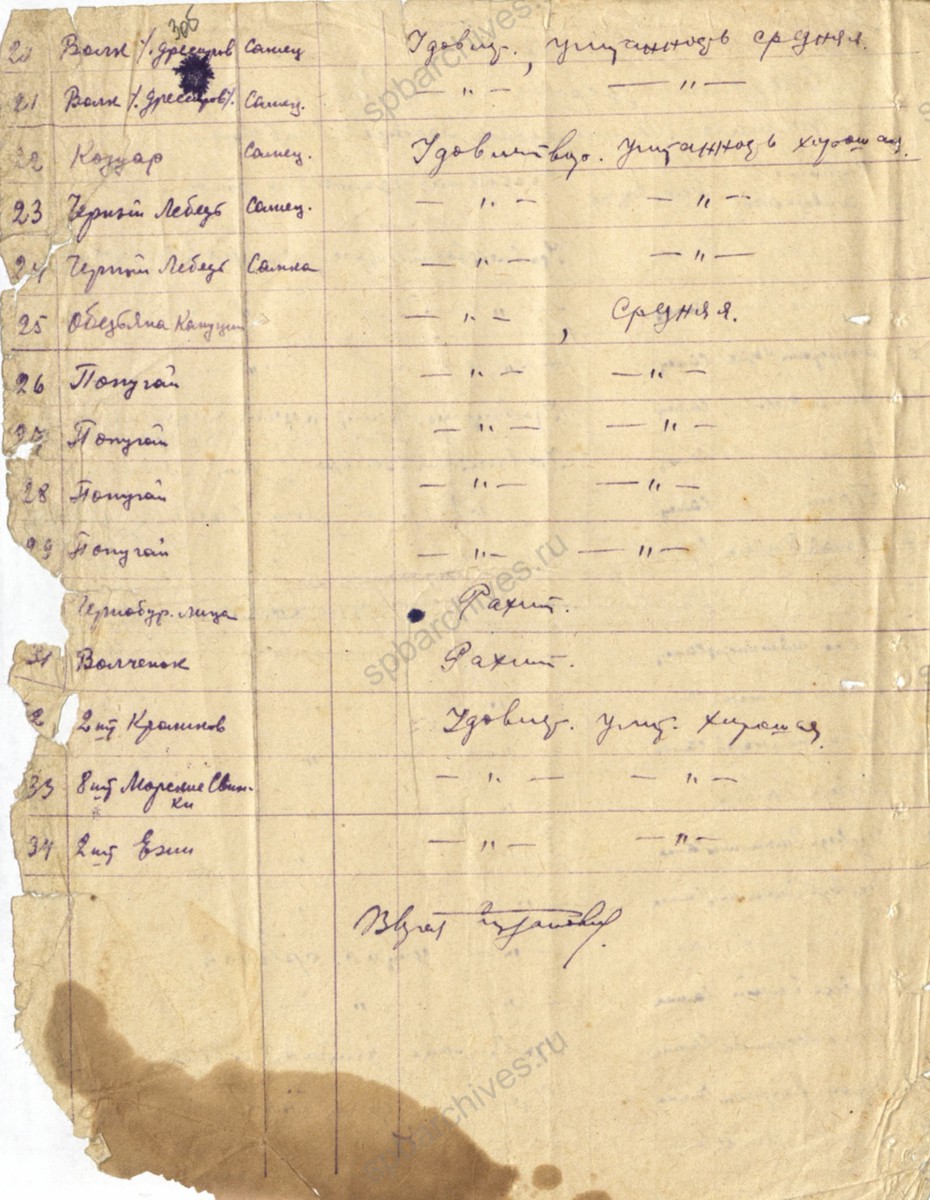 306
20 Волк /.дрессиров Самец Удовлет., упитанность средняя.
21 Волк /.дрессиров/. Самец. — " — — " —
22 Козуар Самец. Удовлетвио. Упитанность хорошая.
23 Черный Лебедь Самец. — " — — " —
24 Черный Лебедь Самка — " — — " —
25 Обезьяна Капуцин — " — , Средняя.
26 Попугай — " — — " —
27 Попугай — " — — " —
28 Попугай — " — — " —
29 Попугай — " — — " —
Чернобур. лица Рахит.
31 Волченок Рахит.
2 2 шт Кроликов Удовлет. Упит. хорошая
33 8 шт Морские Свин- — " — — " —
ки
34 2 шт Ежи — " — — " —
Ввет
spbarchives.ru
spbarchives.ru
spbarchives.ru